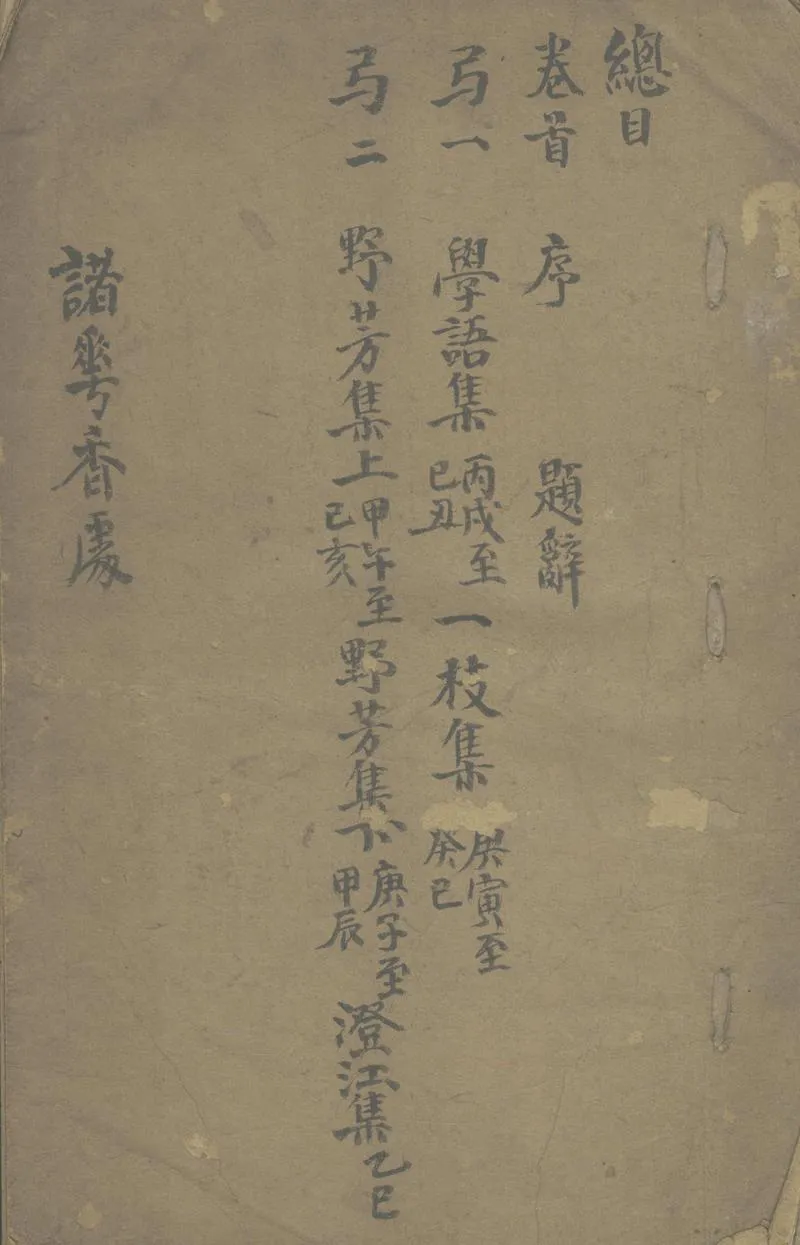 總目
卷首 序 題辭
弓一 學語集 丙戌至己丑 一枝集 庚寅至癸巳
弓二 野芳集上 甲午至己亥 野芳集下 庚子至甲辰 澄江集 乙巳
諸雩香處